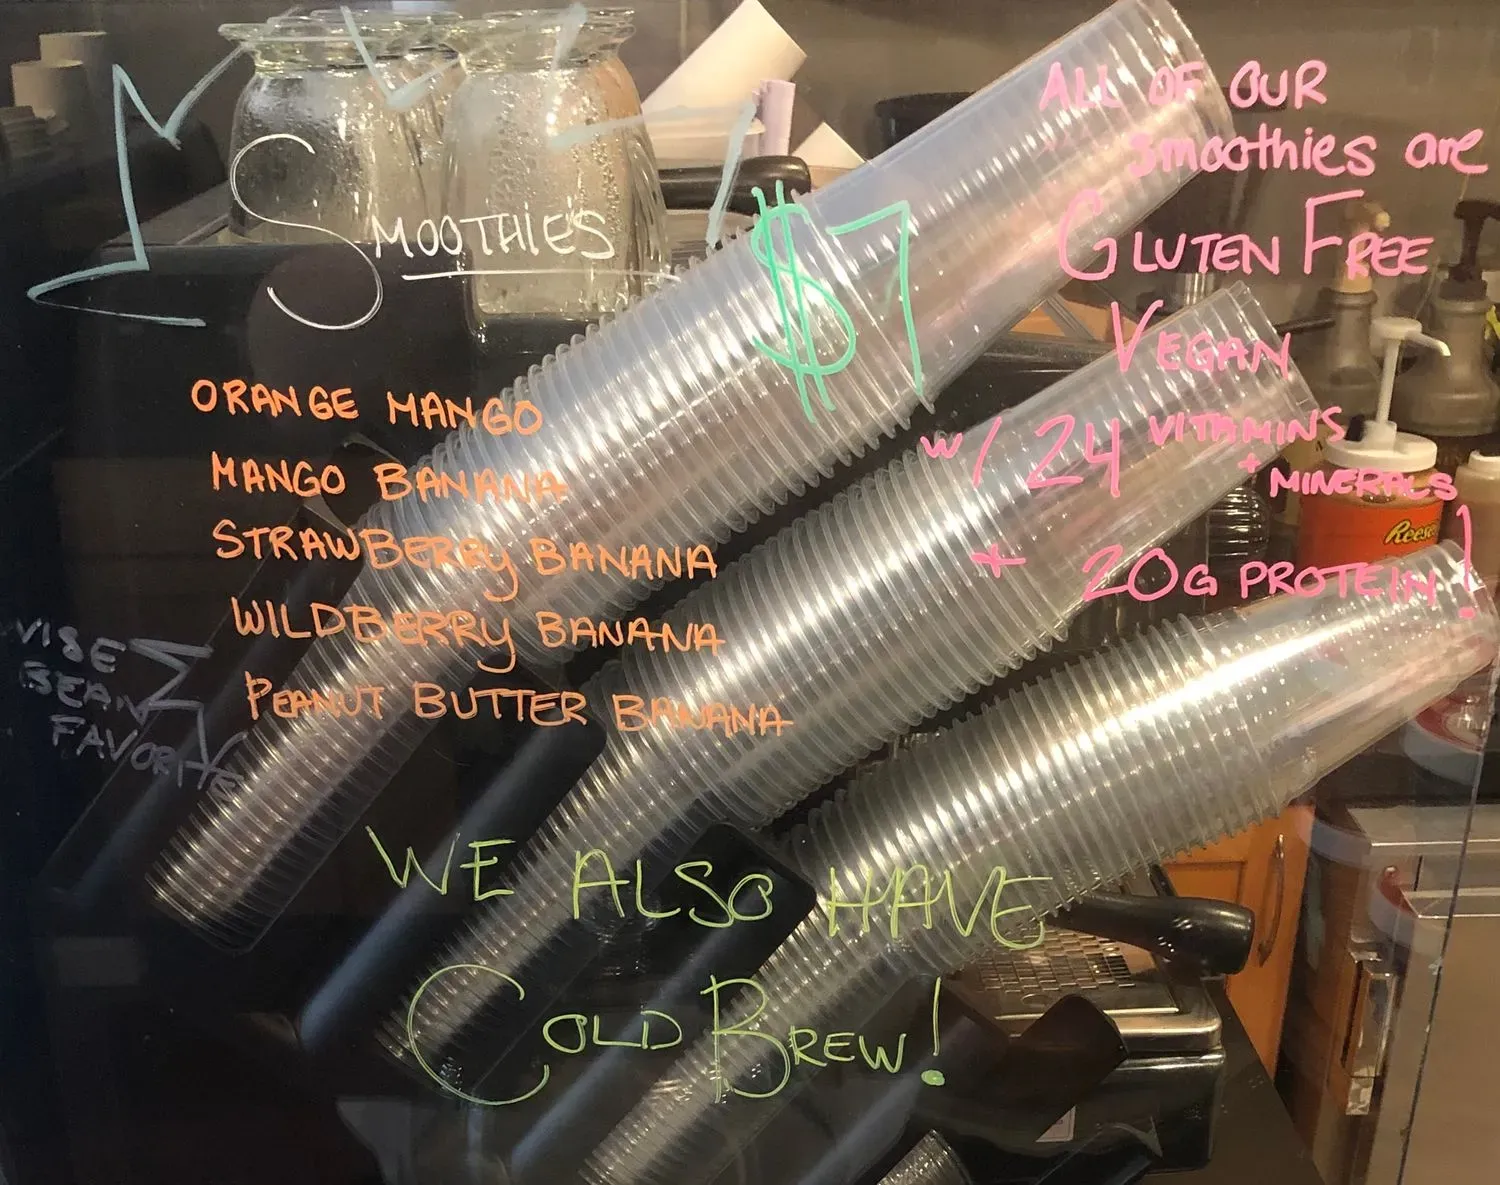 SMOOTHIE'S
$7
ORANGE MANGO
MANGO BANANA
STRAWBERRY BANANA
WILDBERRY BANANA
PEANUT BUTTER BANANA
VIBE
BEAN
FAVORITE
ALL OF OUR
smoothies are
GLUTEN FREE
VEGAN
W/ 24 VITAMINS
+ MINERALS
+ 20G PROTEIN!
Reese
WE ALSO HAVE
COLD BREW!